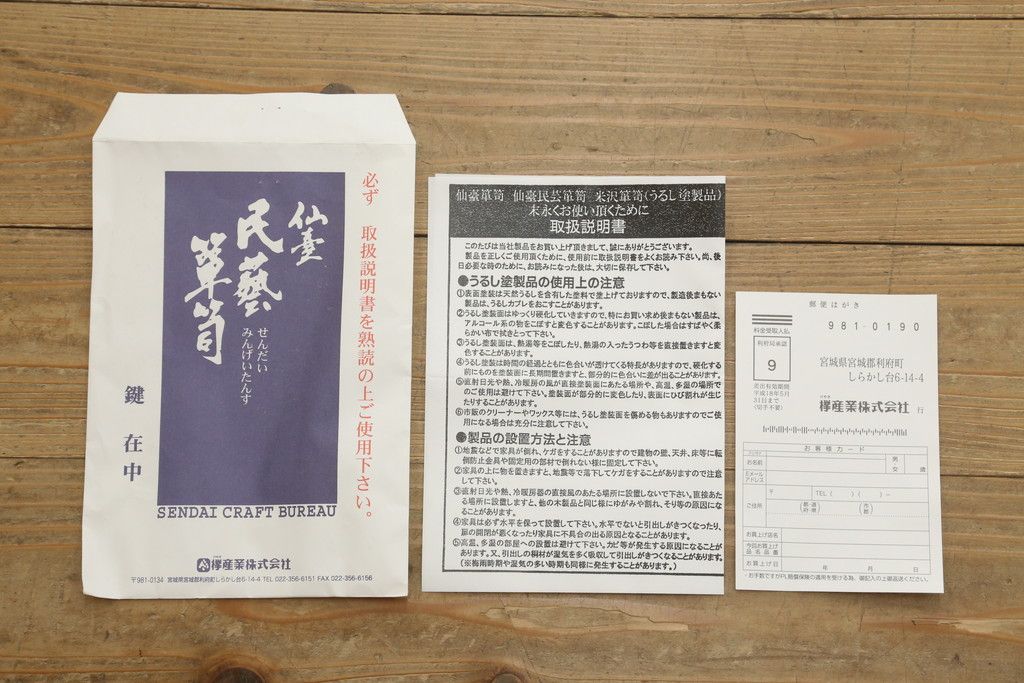 必ず 取扱説明書を熟読の上ご使用下さい。
仙臺
民藝
箪笥
せんだい
みんげいたんす
鍵在中
SENDAI CRAFT BUREAU
欅産業株式会社
〒981-0134 宮城県宮城郡利府町しらかし台6-14-4 TEL 022-356-6151 FAX 022-356-6156
仙臺箪笥 仙臺民芸箪笥 米沢箪笥(うるし塗製品)
末永くお使い頂くために
取扱説明書
このたびは当社製品をお買い上げ頂きまして、誠にありがとうございます。
製品を正しくご使用頂くために、使用前に取扱説明書をよくお読み下さい。尚、後
日必要な時のために、お読みになった後は、大切に保存して下さい。
●うるし塗製品の使用上の注意
①表面塗装は天然うるしを含有した塗料で塗上げておりますので、製造後まもない
製品は、うるしカブレをおこすことがあります。
②うるし塗装面はゆっくり硬化していきますので、特にお買い求め後まもない製品は、
アルコール系の物をこぼすと変色することがあります。こぼした場合はすばやく柔
らかい布で拭きとって下さい。
③うるし塗装面は、熱湯等をこぼしたり、熱湯の入ったうつわ等を直接置きますと変
色することがあります。
④うるし塗装は時間の経過とともに色合いが透けてくる特長がありますので、硬化する
前にものを塗装面に長期間置きますと、部分的に色合いに差が出ることがあります。
⑤直射日光や熱、冷暖房の風が直接塗装面にあたる場所や、高温、多湿の場所で
のご使用は避けて下さい。塗装面が部分的に変色したり、表面にひび割れが生じ
たりすることがあります。
⑥市販のクリーナーやワックス等には、うるし塗装面を傷める物もありますのでご使
用になる場合は充分に注意して下さい。
●製品の設置方法と注意
①地震などで家具が倒れ、ケガをすることがありますので建物の壁、天井、床等に転
倒防止金具や固定用の部材で倒れない様に固定して下さい。
②家具の上に物を置きますと、地震等で落下してケガをすることがありますので注意
して下さい。
③直射日光や熱、冷暖房器の直接風のあたる場所に設置しないで下さい。直接あた
る場所に設置しますと、他の木製品と同じ様にゆがみや割れ、そり等の原因になる
ことがあります。
④家具は必ず水平を保って設置して下さい。水平でないと引出しがきつくなったり、
扉の開閉が悪くなったり家具に不具合の出る原因となることがあります。
⑤高温、多湿の部屋への設置は避けて下さい。カビ等が発生する原因になることが
あります。又、引出しの桐材が湿気を多く吸収して引出しがきつくなることがあります。
(※梅雨時期や湿気の多い時期も同様に発生することがあります。)
郵便はがき
料金受取人払
981-0190
利府局承認
9
差出有効期間
平成18年5月
31日まで
(切手不要)
宮城県宮城郡利府町
しらかし台6-14-4
欅産業株式会社 行
お客様カード
お名前
男
女
歳
Eメール
アドレス
ご住所
〒
TEL ( ) ( ) －
都道
府県
市
郡
お買上げ店名
今回お買上げ
品名品番
お買上げ日
年 月 日
・お手数ですがPL賠償保険の適用を受ける為、御記入の上御返送ください。